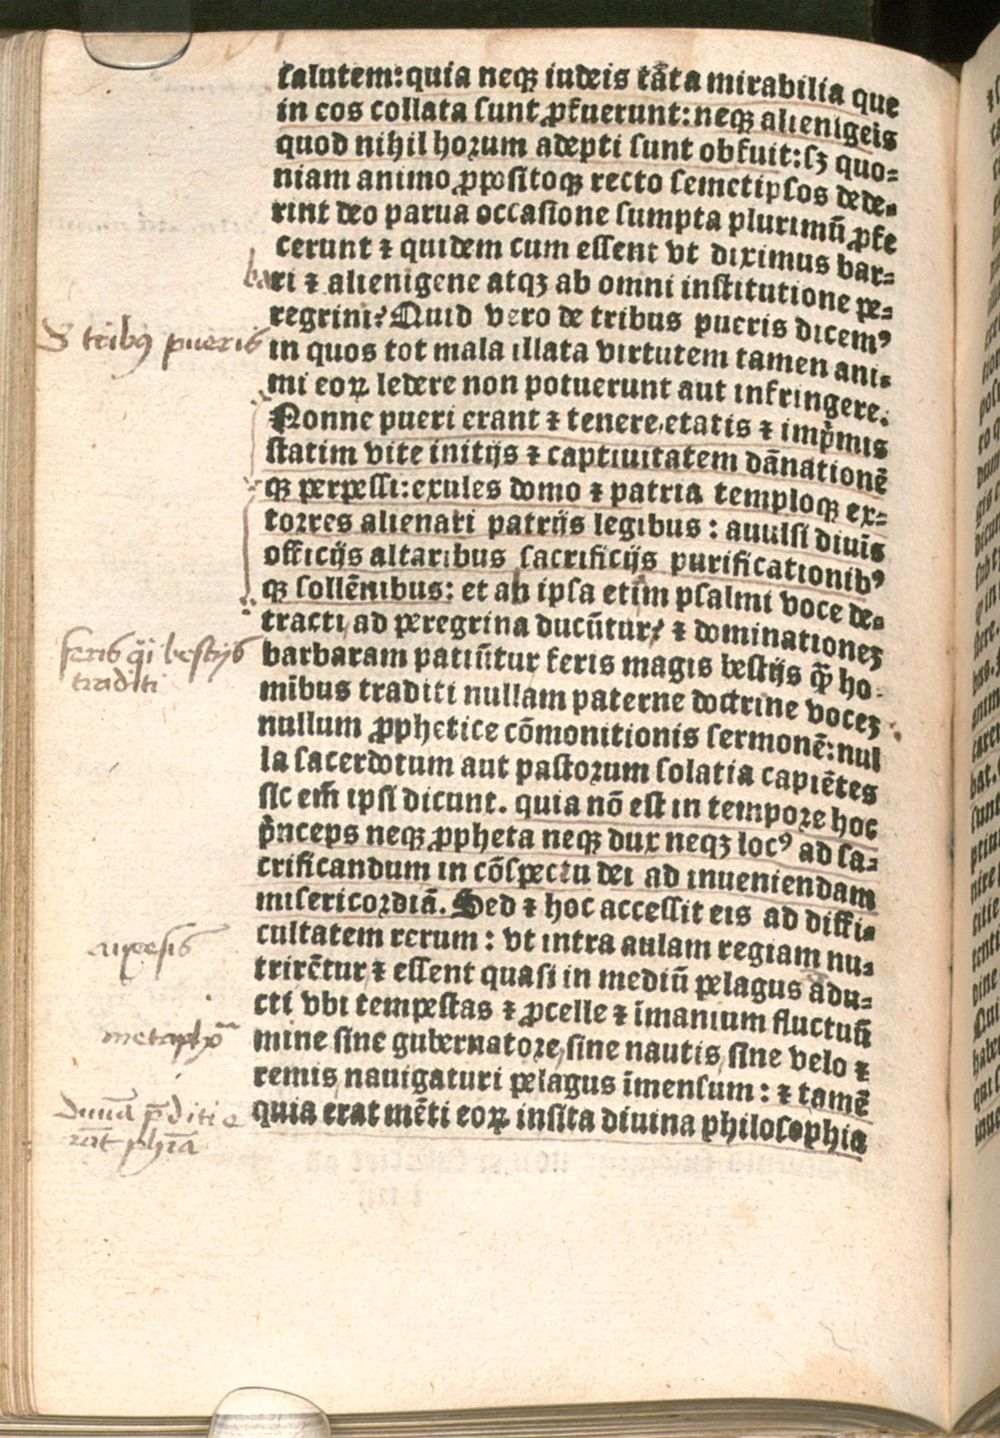 salutem: quia neqꝫ iudeis tāta mirabilia que
in eos collata sunt ꝓfuerunt: neqꝫ alienigeis
quod nihil hoꝛum adepti sunt obfuit: sꝫ quo⸗
niam animo ꝓpositoqꝫ recto semetipsos dede⸗
rint deo parua occasione sumpta plurimū ꝓfe
cerunt ⁊ quidem cum essent vt diximus bar⸗
bari ⁊ alienigene atqꝫ ab omni institutione pe⸗
regrini? Quid vero de tribus pueris dicemꝰ
S tribꝰ pueris
in quos tot mala illata virtutem tamen ani⸗
mi eoꝝ ledere non potuerunt aut infringere.
Nonne pueri erant ⁊ tenere etatis ⁊ imp̄mis
statim vite initijs ⁊ captiuitatem dānationē
qꝫ perpessi: exules domo ⁊ patria temploqꝫ ex⸗
toꝛres alienati patrijs legibus: auulsi diuīs
officijs altaribus sacrificijs purificationibꝰ
qꝫ sollēnibus: et ab ipsa etīm psalmi voce de⸗
tracti ad peregrina ducūtur? ⁊ dominationeꝫ
barbaram patiūtur feris magis bestijs q̄ꝫ ho⸗
feris qi bestijs
traditi
mībus traditi nullam paterne doctrine voceꝫ
nullum ꝓphetice cōmonitionis sermonē: nul
la sacerdotum aut pastoꝛum solatia capiētes
sic em̄ ipsi dicunt. quia nō est in tempoꝛe hoc
p̄nceps neqꝫ ꝓpheta neqꝫ dux neqꝫ locꝰ ad sa⸗
crificandum in cōspectu dei ad inueniendam
misericoꝛdiā. Sed ⁊ hoc accessit eis ad diffi⸗
cultatem rerum: vt intra aulam regiam nu⸗
auxesis
trirētur ⁊ essent quasi in mediū pelagus adu⸗
cti vbi tempestas ⁊ ꝓcelle ⁊ īmanium fluctuū
metaphoꝛ
mine sine gubernatoꝛe, sine nautis, sine velo ⁊
remis nauigaturi pelagus īmensum: ⁊ tamē
quia erat mēti eoꝝ insita diuina philosophia